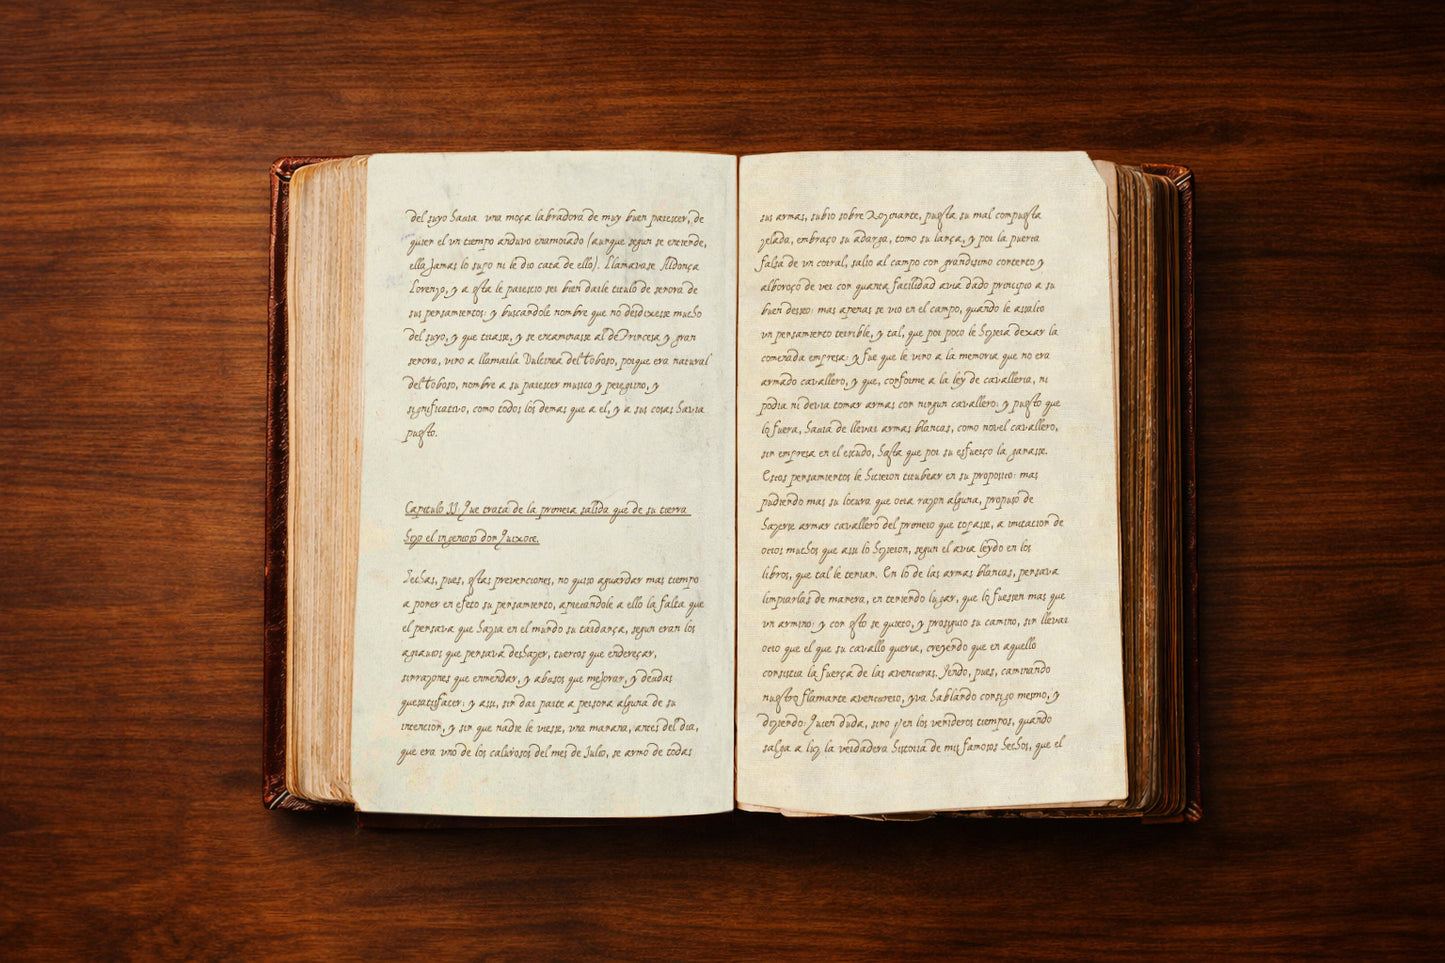 del suyo havia una moça labradora de muy buen parescer, de
quien el un tiempo anduvo enamorado (aunque segun se entiende,
ella jamas lo supo ni le dio cata de ello). Llamavase Aldonça
Lorenzo, y a esta le parescio ser bien darle titulo de senora de
sus pensamientos: y buscandole nombre que no desdixesse mucho
del suyo, y que tirasse, y se encaminasse al de Princesa y gran
senora, vino a llamarla Dulcinea del Toboso, porque era natural
del Toboso, nombre a su parescer musico y peregrino, y
significativo, como todos los demas que a el, y a sus cosas havia
puesto.
Capitulo II: Que trata de la primera salida que de su tierra
hizo el ingenioso don Quixote.
Hechas, pues, estas prevenciones, no quiso aguardar mas tiempo
a poner en efeto su pensamiento, apretandole a ello la falta que
el pensava que hazia en el mundo su tardança, segun eran los
agravios que pensava deshazer, tuertos que endereçar,
sinrazones que enmendar, y abusos que mejorar, y deudas
que satisfacer: y assi, sin dar parte a persona alguna de su
intencion, y sin que nadie le viesse, una manana, antes del dia,
que era uno de los calurosos del mes de Julio, se armo de todas
sus armas, subio sobre Rozinante, puesta su mal compuesta
zelada, embraço su adarga, tomo su lança, y por la puerta
falsa de un corral, salio al campo con grandissimo contento y
alboroço de ver con quanta facilidad avia dado principio a su
buen desseo: mas apenas se vio en el campo, quando le assalto
un pensamiento terrible, y tal, que por poco le hiziera dexar la
comenada empresa: y fue que le vino a la memoria que no era
armado cavallero, y que, conforme a la ley de cavalleria, ni
podia ni devia tomar armas con ningun cavallero: y puesto que
lo fuera, havia de llevar armas blancas, como novel cavallero,
sin empresa en el escudo, hasta que por su esfuerço la ganasse.
Estos pensamientos le hicieron titubear en su proposito: mas
pudiendo mas su locura que otra razon alguna, propuso de
hazerse armar cavallero del primero que topasse, a imitacion de
otros muchos que assi lo hizieron, segun el avia leydo en los
libros, que tal le tenian. En lo de las armas blancas, pensava
limpiarlas de manera, en teniendo lugar, que lo fuessen mas que
un armino: y con esto se quieto, y prosiguio su camino, sin llevar
otro que el que su cavallo queria, creyendo que en aquello
consistia la fuerça de las aventuras. Yendo, pues, caminando
nuestro flamante aventurero, yva hablando consigo mesmo, y
diziendo: Quien duda, sino que en los venideros tiempos, quando
salga a luz la verdadera historia de mis famosos hechos, que el